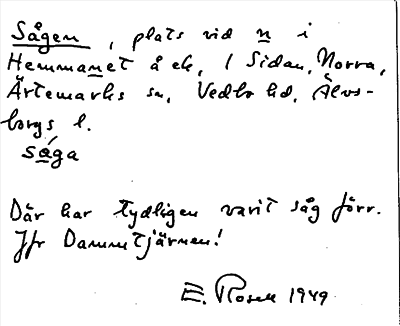 Sågen, plats vid n i
Hemmanet å ek, 1 Sidan, Norra,
Ärtemarks sn, Vedbo hd, Älvs-
borgs l.
såga
Där har tydligen varit såg förr.
Jfr Dammtjärnen!
E. Rosell 1949